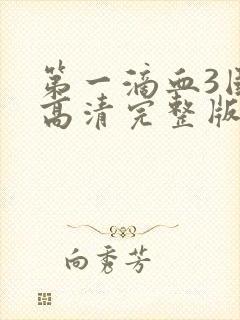 第一滴血3国
高清完整版
向秀芳